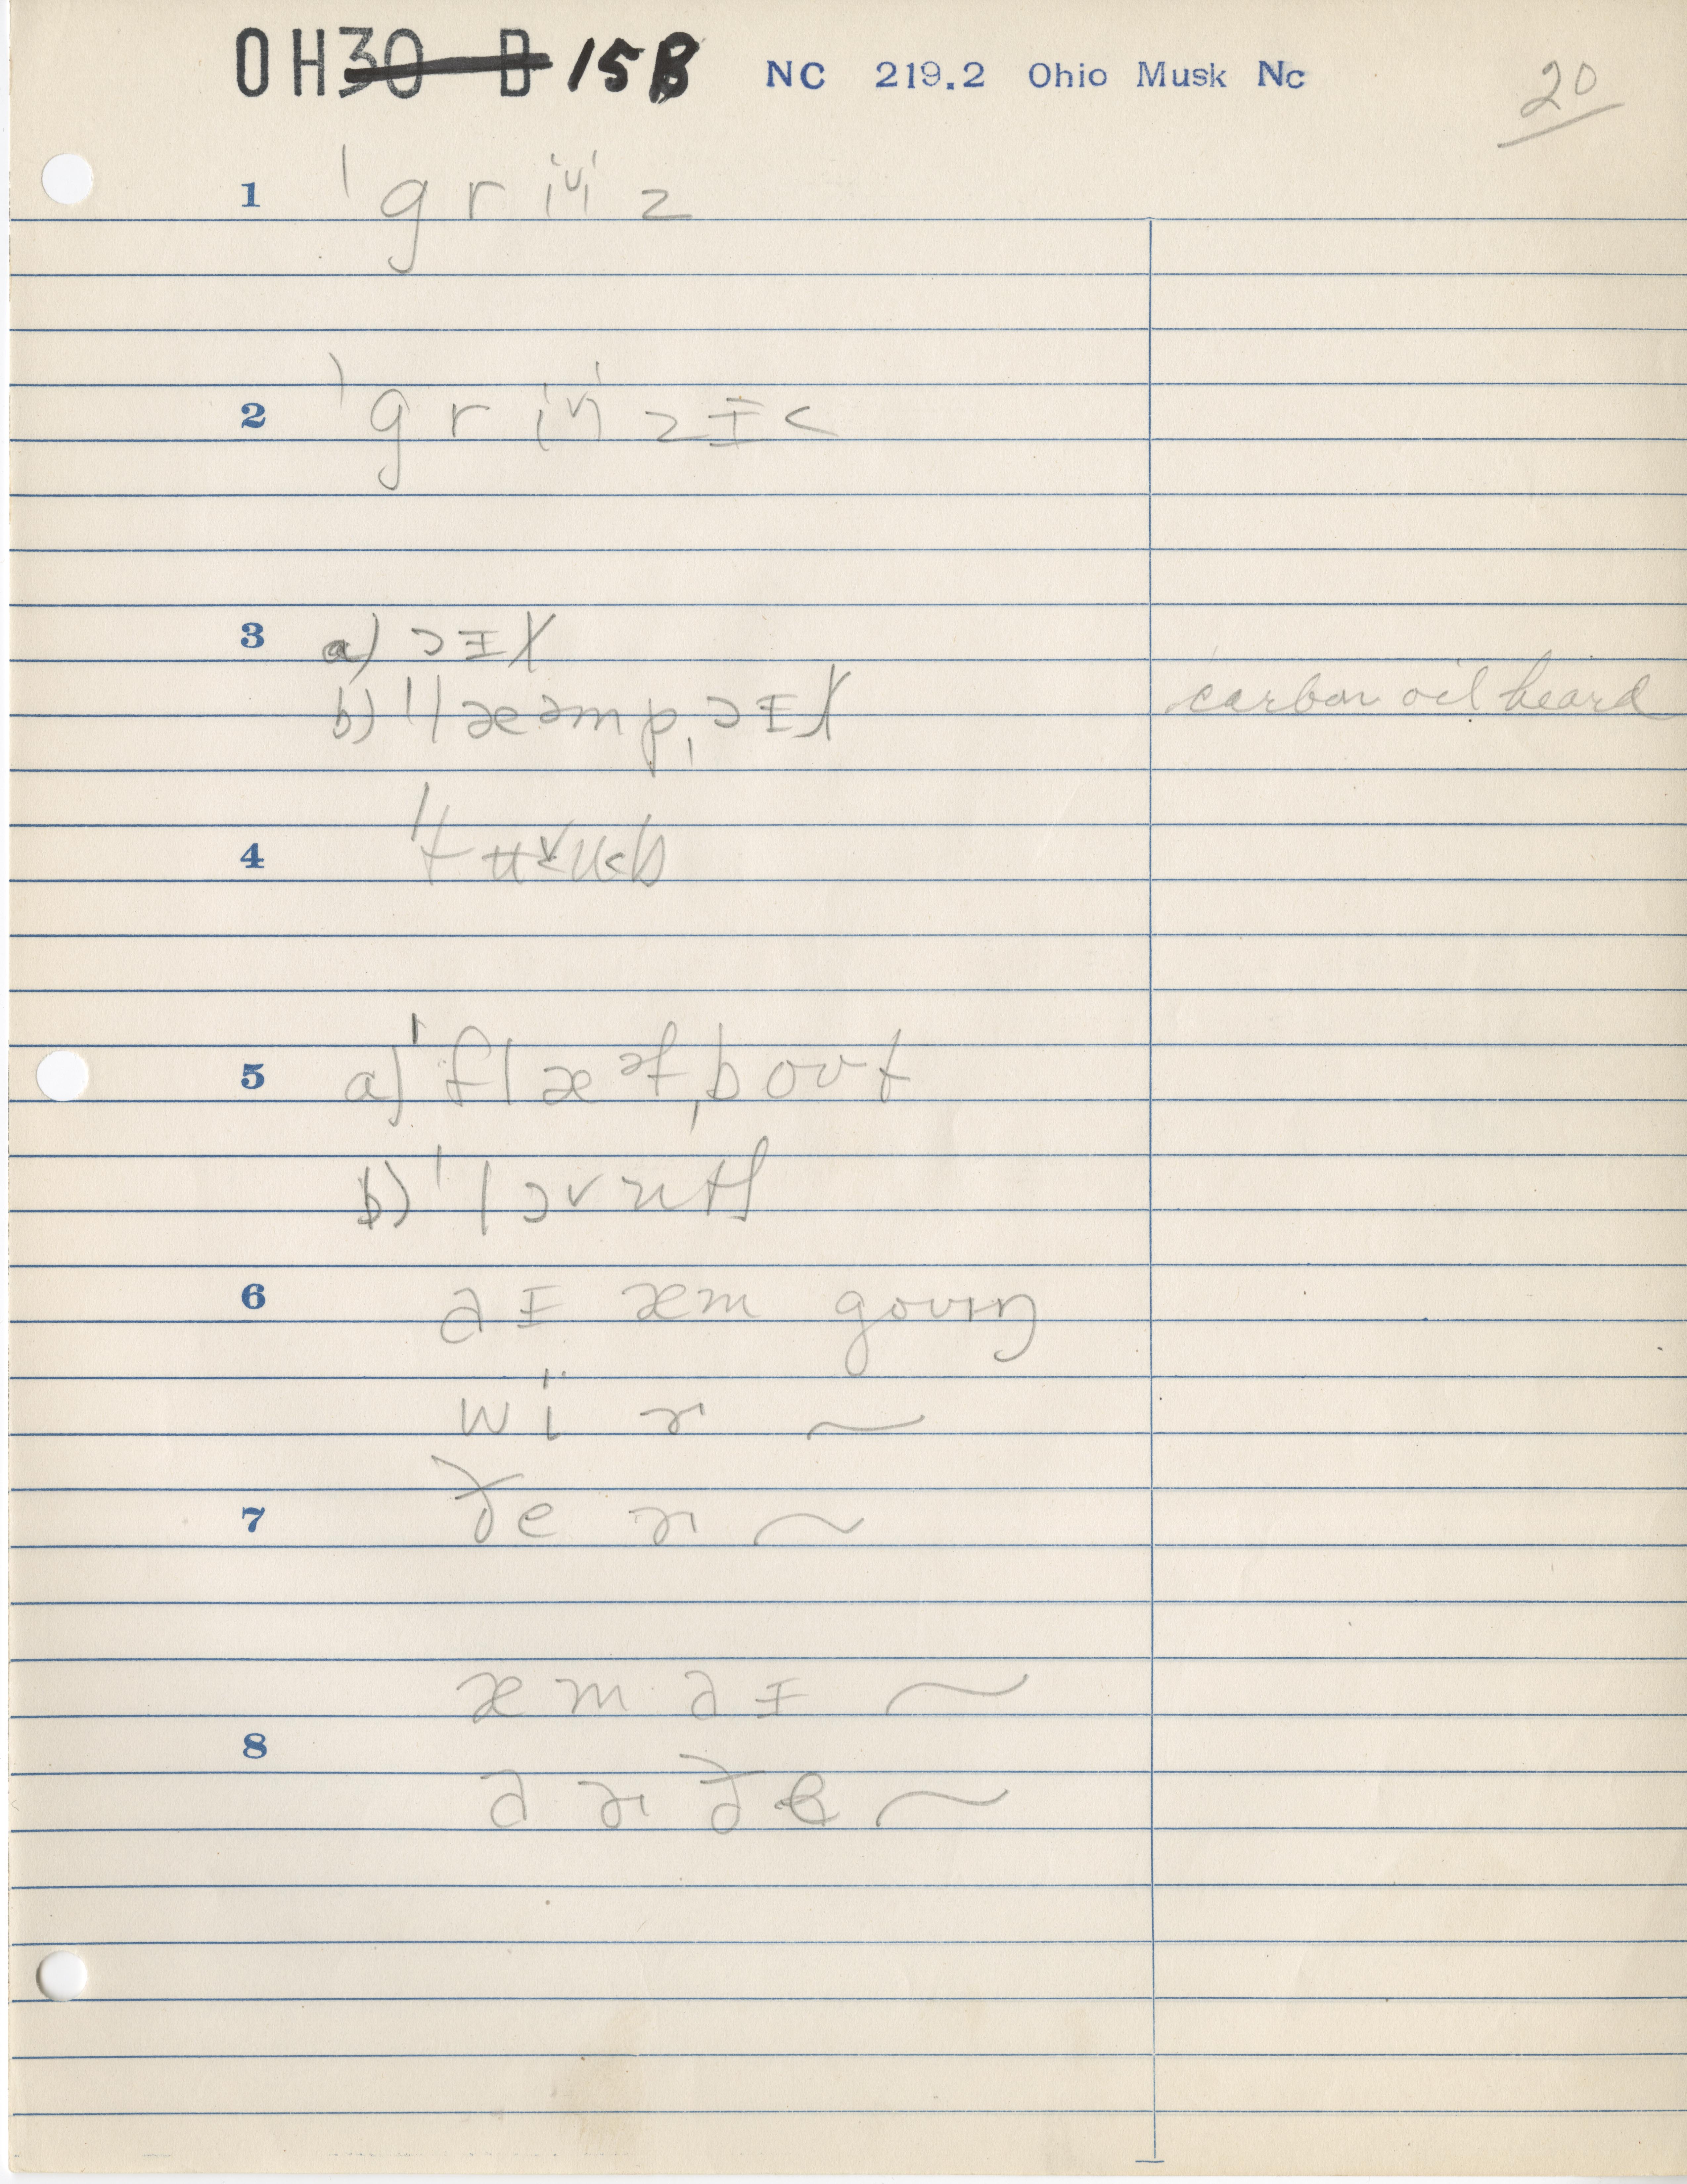 OH30 B 15B NC 219.2 Ohio Musk Nc 20
1 ˈgriᶤiz
2 ˈgriᶤizɪ<
3 a) ɔɪɫ
b) ˈlæəmpˌɔɪɫ carbon oil heard
4
5 a) ˈflæᵊtˌboʊt
b) ˈlɔvntʃ
6 aɪ æm goʊɪŋ
wi ɚ ~
7 ðe ɚ ~
æm aɪ ~
8 a ɚ ðe ~